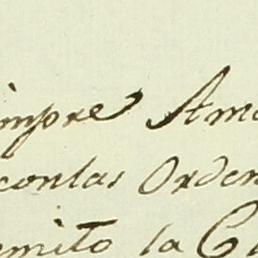 impre Ama
con las Orden
emito la Ca